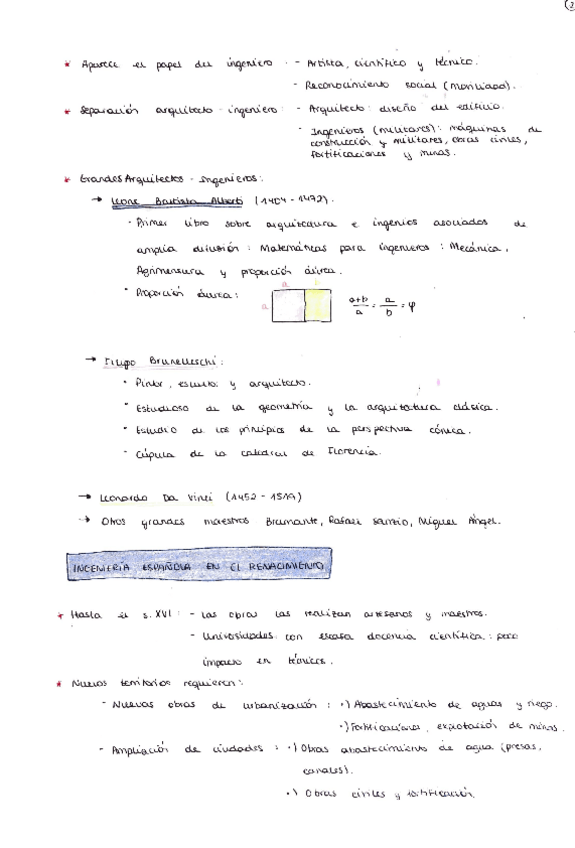 * Aparece el papel del ingeniero - Artista, científico y técnico.
- Reconocimiento social (monetizado).
* Separación arquitecto-ingeniero: - Arquitecto: diseño del edificio.
- Ingenieros (militares): máquinas de
construcción y militares, obras civiles,
fortificaciones y minas.
* Grandes Arquitectos - Ingenieros:
→ Leone Battista Alberti (1404-1472).
· Primer libro sobre arquitectura e ingenios asociados de
amplia difusión: Matemáticas para ingenieros: Mecánica,
Agrimensura y proporción áurea.
· Proporción áurea: a a a+b/a = a/b = φ
→ Filippo Brunelleschi:
· Pintor, escultor y arquitecto.
· Estudioso de la geometría y la arquitectura clásica.
· Estudio de los principios de la perspectiva cónica.
· Cúpula de la catedral de Florencia.
→ Leonardo Da Vinci (1452-1519)
→ Otros grandes maestros Bramante, Rafael Sanzio, Miguel Ángel.
INGENIERÍA ESPAÑOLA EN EL RENACIMIENTO
* Hasta el s. XVI: - Las obras las realizan artesanos y maestros.
- Universidades con escasa docencia científica: poco
impacto en técnicos.
* Nuevos territorios requieren:
- Nuevas obras de urbanización: ·) Abastecimiento de aguas y riego.
·) Fortificaciones, explotación de minas.
- Ampliación de ciudades: ·) Obras abastecimiento de agua (presas,
canales).
·) Obras civiles y fortificación.